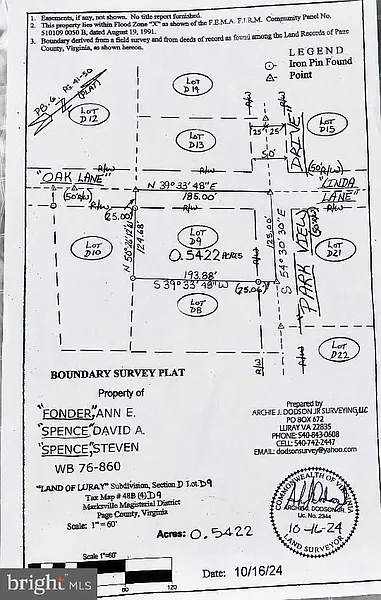 1. Easements, if any, not shown. No title report furnished.
2. This property lies within Flood Zone "X" as shown of the F.E.M.A. F.I.R.M. Community Panel No.
510109 0050 B, dated August 19, 1991.
3. Boundary derived from a field survey and from deeds of record as found among the Land Records of Page
County, Virginia, as shown hereon.
LEGEND
Iron Pin Found
Point
DB. G PG. 41-50
(PLAT)
LOT D14
LOT D12
LOT D13
LOT D15
R/W
R/W
25' 25'
50'
DRIVE"
(50' R/W)
"OAK LANE"
R/W
R/W
N 39°33'48"E
185.00'
"LINDA
LANE"
R/W
(50' R/W)
R/W
(25.00')
R/W
LOT D10
124.68'
LOT D9
0.5422 ACRES
125.00'
S 54°30'30"E
"PARK VIEW
(50' R/W)
LOT D21
193.88'
R/W
(25.04')
S 39°33'48"W
LOT D8
R/W
R/W
LOT D22
BOUNDARY SURVEY PLAT
Property of
"FONDER," ANN E.
"SPENCE," DAVID A.
"SPENCE," STEVEN
WB 76-860
Prepared by
ARCHIE J. DODSON JR SURVEYING, LLC
PO BOX 672
LURAY VA 22835
PHONE: 540-843-0608
CELL: 540-742-2447
EMAIL: dodsonsurvey@yahoo.com
"LAND OF LURAY" Subdivision, Section D Lot D9
Tax Map # 48B (4) D9
Marksville Magisterial District
Page County, Virginia
Scale: 1" = 60'
Acres: 0.5422
COMMONWEALTH OF VIRGINIA
ARCHIE J. DODSON JR.
Lic. No. 2344
10-16-24
LAND SURVEYOR
Scale 1"=60'
60
120
Date: 10/16/24
bright MLS